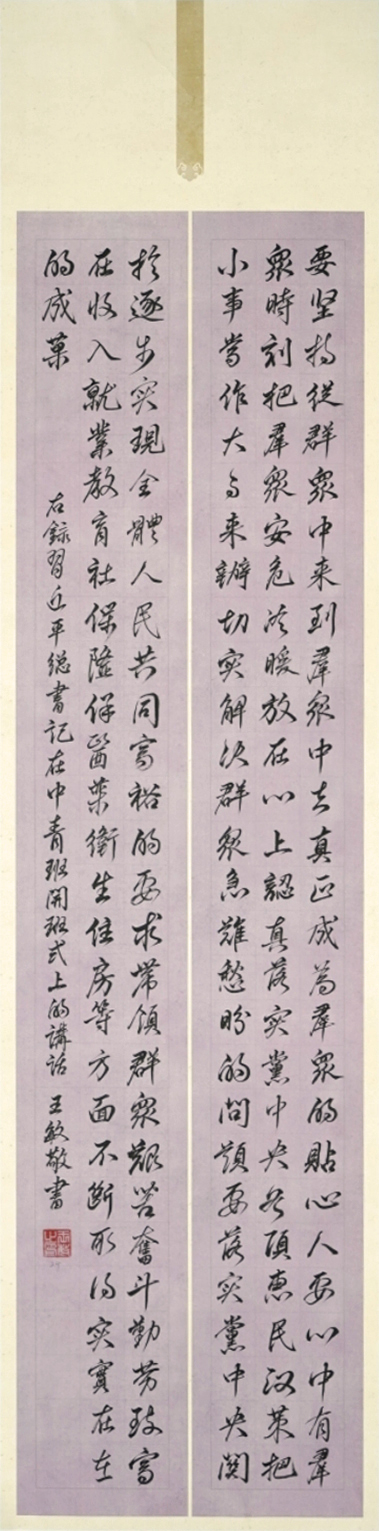 要坚持従群衆中来到羣衆中去真正成為羣衆的貼心人要心中有羣
衆時刻把羣衆安危冷暖放在心上認真落实黨中央各項惠民政策把
小事當作大事来辦切实解决群衆急難愁盼的問題要落实黨中央関
於逐步实現全體人民共同富裕的要求帶領群衆艱苦奮斗勤劳致富
在收入就業教育社保醫保醫藥衛生住房等方面不断取得实實在在
的成果
右錄習近平總書記在中青班開班式上的講話 王敏敬書